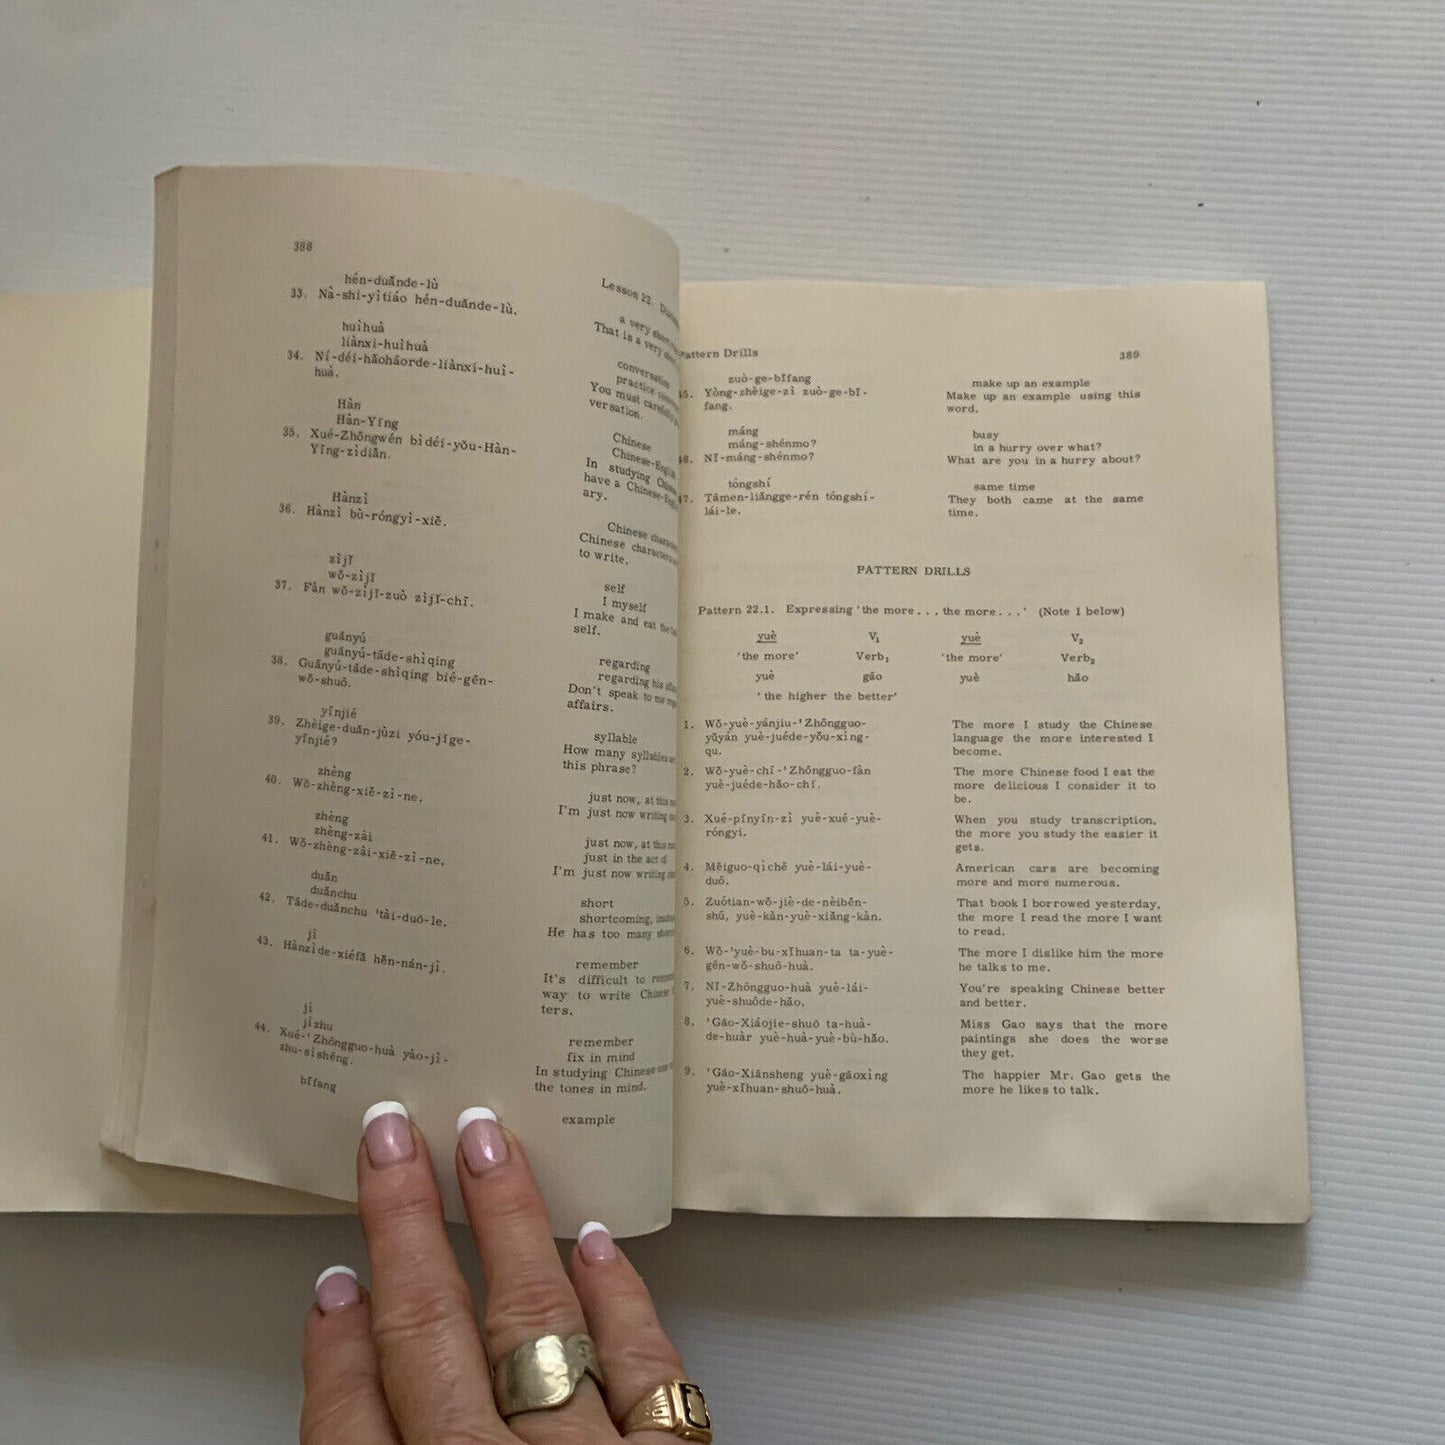 388
Lesson 22.
hén-duǎnde-lù
a very short
33. Nà-shi-yìtiáo hén-duǎnde-lù.
That is a very
huìhuà
conversation
liànxi-huìhuà
practice
34. Ní-déi-hǎohāorde-liànxí-huì-
You must carefully
huà.
versation.
Hàn
Chinese
Hàn-Yīng
Chinese-English
35. Xué-Zhōngwén bìdéi-yǒu-Hàn-
In studying
Yīng-zìdiǎn.
have a Chinese-
ary.
Hànzì
Chinese
36. Hànzì bù-róngyì-xiě.
Chinese characters
to write.
zìjǐ
self
wǒ-zìjǐ
I myself
37. Fàn wǒ-zìjǐ-zuò zìjǐ-chī.
I make and eat the
self.
guānyú
regarding
guānyú-tāde-shìqing
regarding his
38. Guānyú-tāde-shìqing bié-gēn-
Don't speak to me
wǒ-shuō.
affairs.
yīnjié
syllable
39. Zhèige-duǎn-jùzi yóu-jǐge-
How many syllables
yīnjié?
this phrase?
zhèng
just now, at this
40. Wǒ-zhèng-xiě-zì-ne.
I'm just now writing
zhèng
just now, at this
zhèng-zài
just in the act of
41. Wǒ-zhèng-zài-xiě-zì-ne.
I'm just now writing
duǎn
short
duǎnchu
shortcoming,
42. Tāde-duǎnchu 'tài-duō-le.
He has too many
jì
remember
43. Hànzìde-xiéfǎ hěn-nán-jì.
It's difficult to
way to write Chinese
ters.
jì
remember
jìzhu
fix in mind
44. Xué-'Zhōngguo-huà yào-jì-
In studying Chinese one
zhu-sìshēng.
the tones in mind.
bǐfang
example
Pattern Drills
389
zuò-ge-bǐfang
make up an example
45. Yòng-zhèige-zì zuò-ge-bǐ-
Make up an example using this
fang.
word.
máng
busy
máng-shénmo?
in a hurry over what?
46. Nǐ-máng-shénmo?
What are you in a hurry about?
tóngshí
same time
47. Tāmen-liǎngge-rén tóngshí-
They both came at the same
lái-le.
time.
PATTERN DRILLS
Pattern 22.1. Expressing 'the more . . . the more . . .' (Note 1 below)
yuè V1 yuè V2
'the more' Verb1 'the more' Verb2
yuè gāo yuè hǎo
'the higher the better'
1. Wǒ-yuè-yánjiu-'Zhōngguo-
The more I study the Chinese
yǔyán yuè-juéde-yǒu-xìng-
language the more interested I
qu.
become.
2. Wǒ-yuè-chī-'Zhōngguo-fàn
The more Chinese food I eat the
yuè-juéde-hǎo-chī.
more delicious I consider it to
be.
3. Xué-pīnyīn-zì yuè-xué-yuè-
When you study transcription,
róngyi.
the more you study the easier it
gets.
4. Měiguo-qìchē yuè-lái-yuè-
American cars are becoming
duō.
more and more numerous.
5. Zuótian-wǒ-jiè-de-nèiběn-
That book I borrowed yesterday,
shū, yuè-kàn-yuè-xiǎng-kàn.
the more I read the more I want
to read.
6. Wǒ-'yuè-bu-xǐhuan-ta ta-yuè-
The more I dislike him the more
gēn-wǒ-shuō-huà.
he talks to me.
7. Nǐ-Zhōngguo-huà yuè-lái-
You're speaking Chinese better
yuè-shuōde-hǎo.
and better.
8. 'Gāo-Xiáojie-shuō ta-huà-
Miss Gao says that the more
de-huàr yuè-huà-yuè-bù-hǎo.
paintings she does the worse
they get.
9. 'Gāo-Xiānsheng yuè-gāoxìng
The happier Mr. Gao gets the
yuè-xǐhuan-shuō-huà.
more he likes to talk.